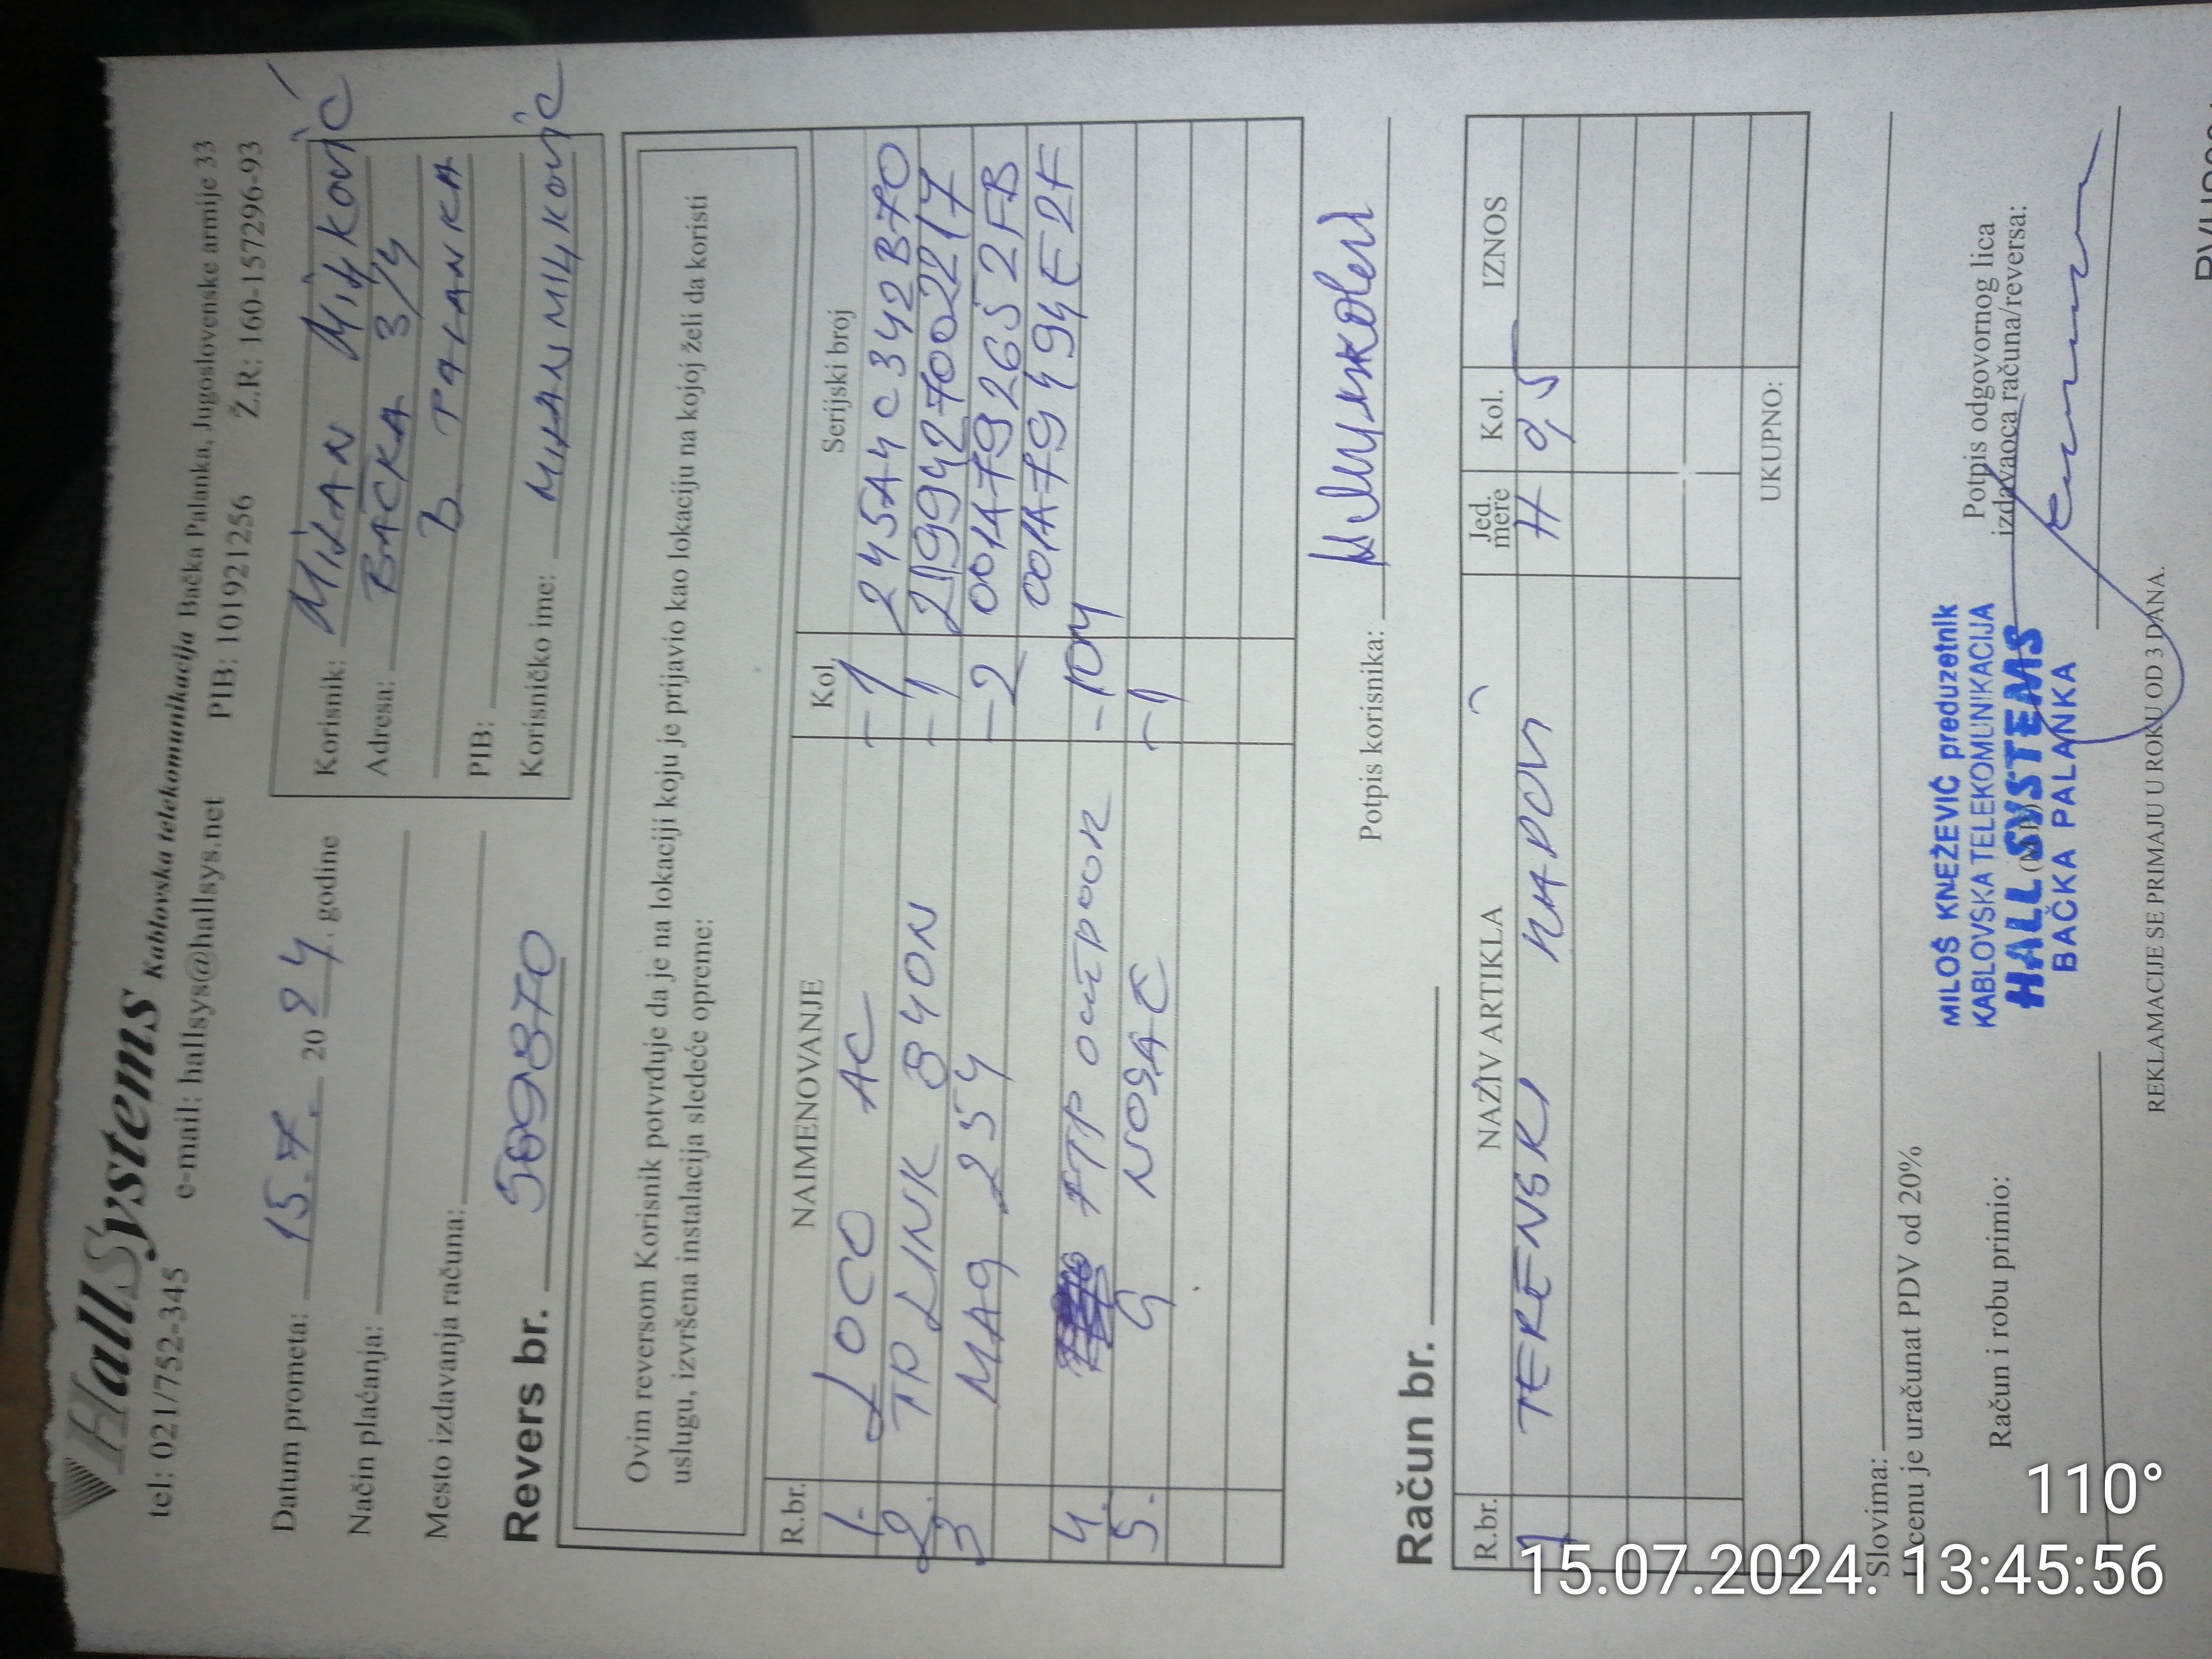 HallSystems Kablovska telekomunikacija Bačka Palanka, Jugoslovenske armije 33
tel: 021/752-345 e-mail: hallsys@hallsys.net PIB: 101921256 Ž.R: 160-157296-93
Datum prometa: 15.7. 2024. godine
Način plaćanja:
Mesto izdavanja računa:
Revers br.
Korisnik: MILAN Miljković
Adresa: BAČKA 3/4
B PALANKA
PIB:
Korisničko ime: MILANMILJKOVIĆ
Ovim reversom Korisnik potvrđuje da je na lokaciji koju je prijavio kao lokaciju na kojoj želi da koristi
uslugu, izvršena instalacija sledeće opreme:
R.br. NAIMENOVANJE Kol. Serijski broj
1. LOCO AC -1 245A4C342B70
2. TP LINK 840N -1 2199427002217
3 MAG 254 -2 001A792652FB
001A79494E2F
4. FTP -10M
5. NOSAČ -1
Potpis korisnika:
Račun br.
R.br. NAZIV ARTIKLA Jed. mere Kol. IZNOS
1 TERENSKI H 0,5
UKUPNO:
Slovima:
U cenu je uračunat PDV od 20%
Račun i robu primio:
(M.P.)
MILOŠ KNEŽEVIĆ preduzetnik
KABLOVSKA TELEKOMUNIKACIJA
HALL SYSTEMS
BAČKA PALANKA
Potpis odgovornog lica
izdavaoca računa/reversa:
REKLAMACIJE SE PRIMAJU U ROKU OD 3 DANA.
110°
15.07.2024. 13:45:56